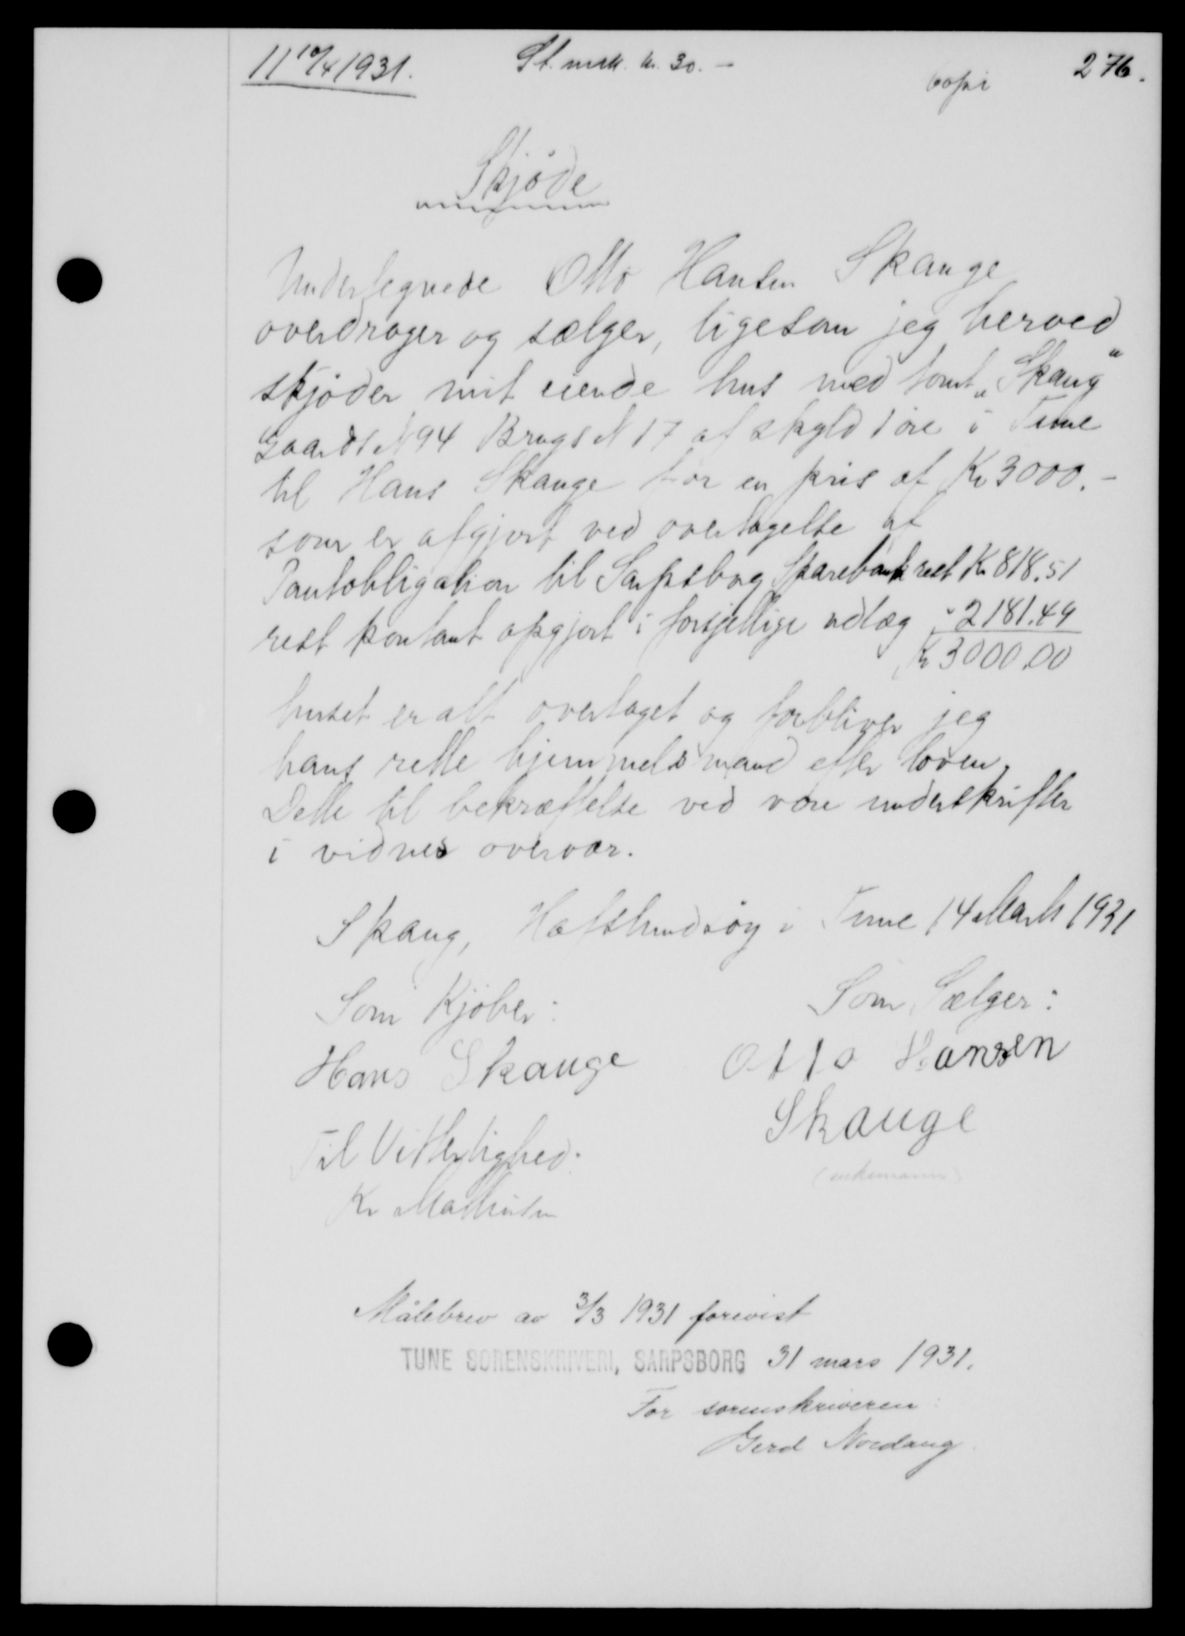 11 10/4 1931. St. merk. kr. 30.- Copi 276.
Skjøde
Undertegnede Otto Hansen Skauge
overdrager og sælger, ligesom jeg herved
skjøder mit eiende hus med tomt „Skaug"
Gaards N 94 Brugs N 17 af skyld 1 øre i Tune
til Hans Skauge for en pris af Kr 3000.-
som er afgjort ved overtagelse af
Pantobligation til Sarpsborg Sparebank rest Kr 818,51
rest kontant opgjort i forsjellige udlæg " 2181.49
Kr 3000.00
huset er alt overtaget og forbliver jeg
hans rette hjemmelsmand efter loven.
Dette til bekræftelse ved vore underskrifter
i vidnes overvær.
Skaug, Hafslundsøy i Tune 14 Marts 1931
Som Kjøber: Som Sælger:
Hans Skauge Otto Hansen
Skauge
Til Vitterlighed: (enkemann)
Kr Mathisen
Målebrev av 3/3 1931 forevist
TUNE SORENSKRIVERI, SARPSBORG 31 mars 1931.
For sorenskriveren:
Gerd Nordaug.